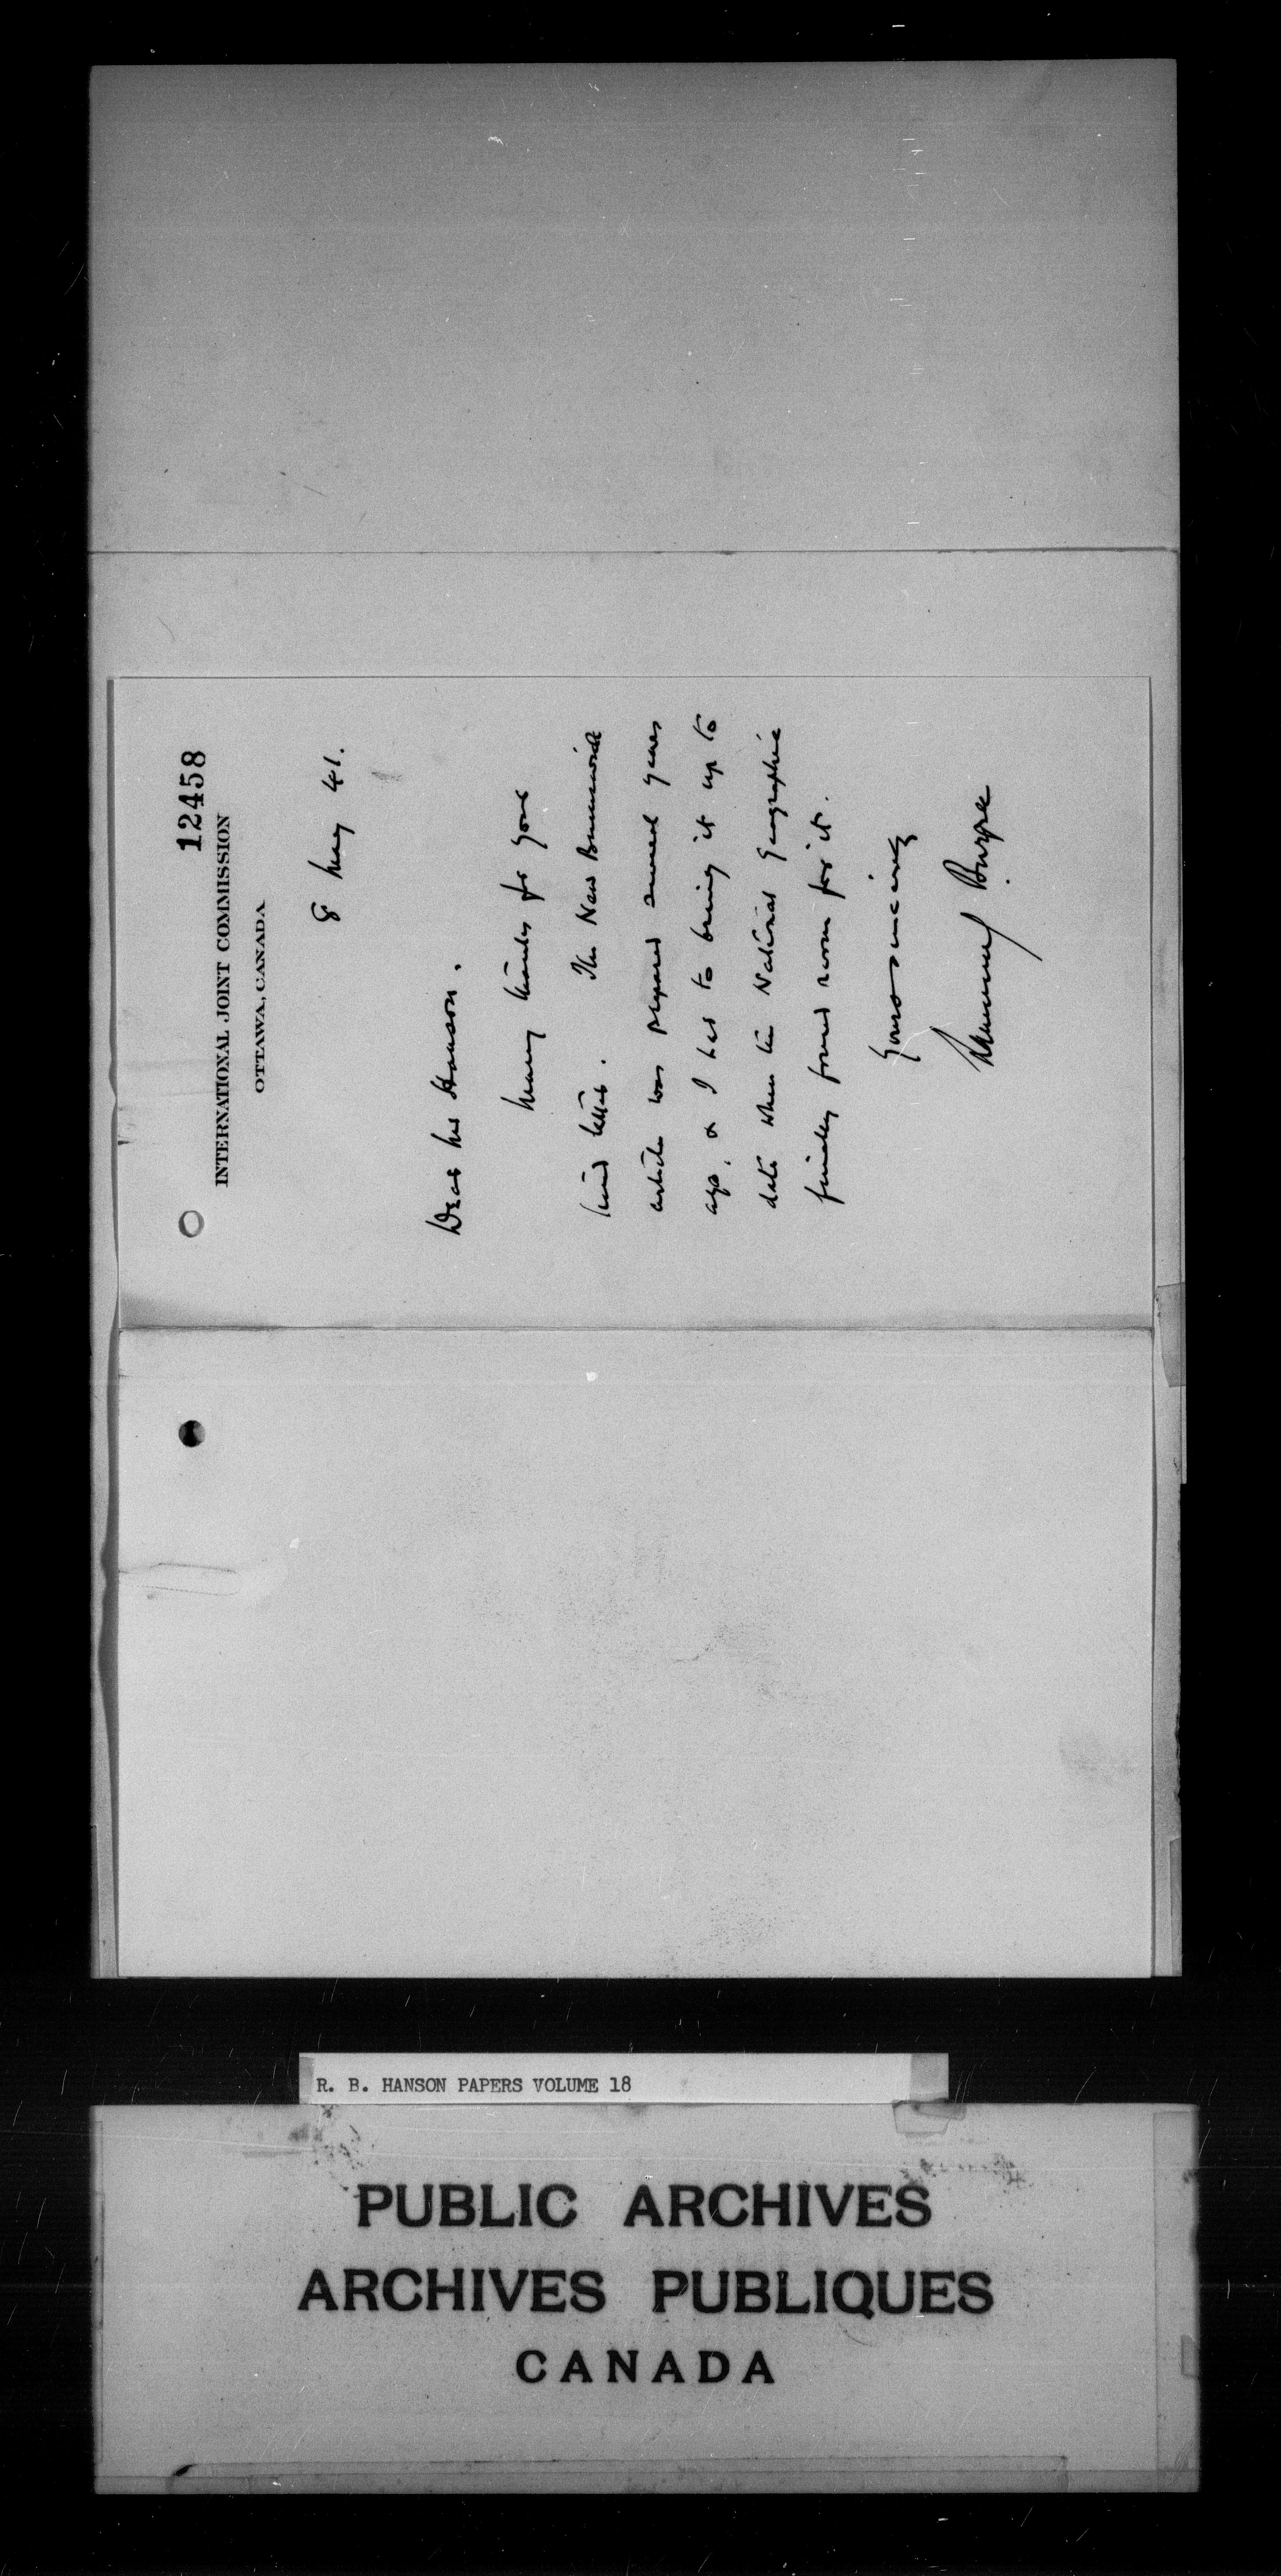 12458
INTERNATIONAL JOINT COMMISSION
OTTAWA, CANADA
8 May 41.
Dear Mr Hanson.
Many thanks for your
kind letter. The New Brunswick
article was prepared several years
ago, & I had to bring it up to
date when the National Geographic
finally found room for it.
Yours sincerely
Lawrence J Burpee
R. B. HANSON PAPERS VOLUME 18
PUBLIC ARCHIVES
ARCHIVES PUBLIQUES
CANADA